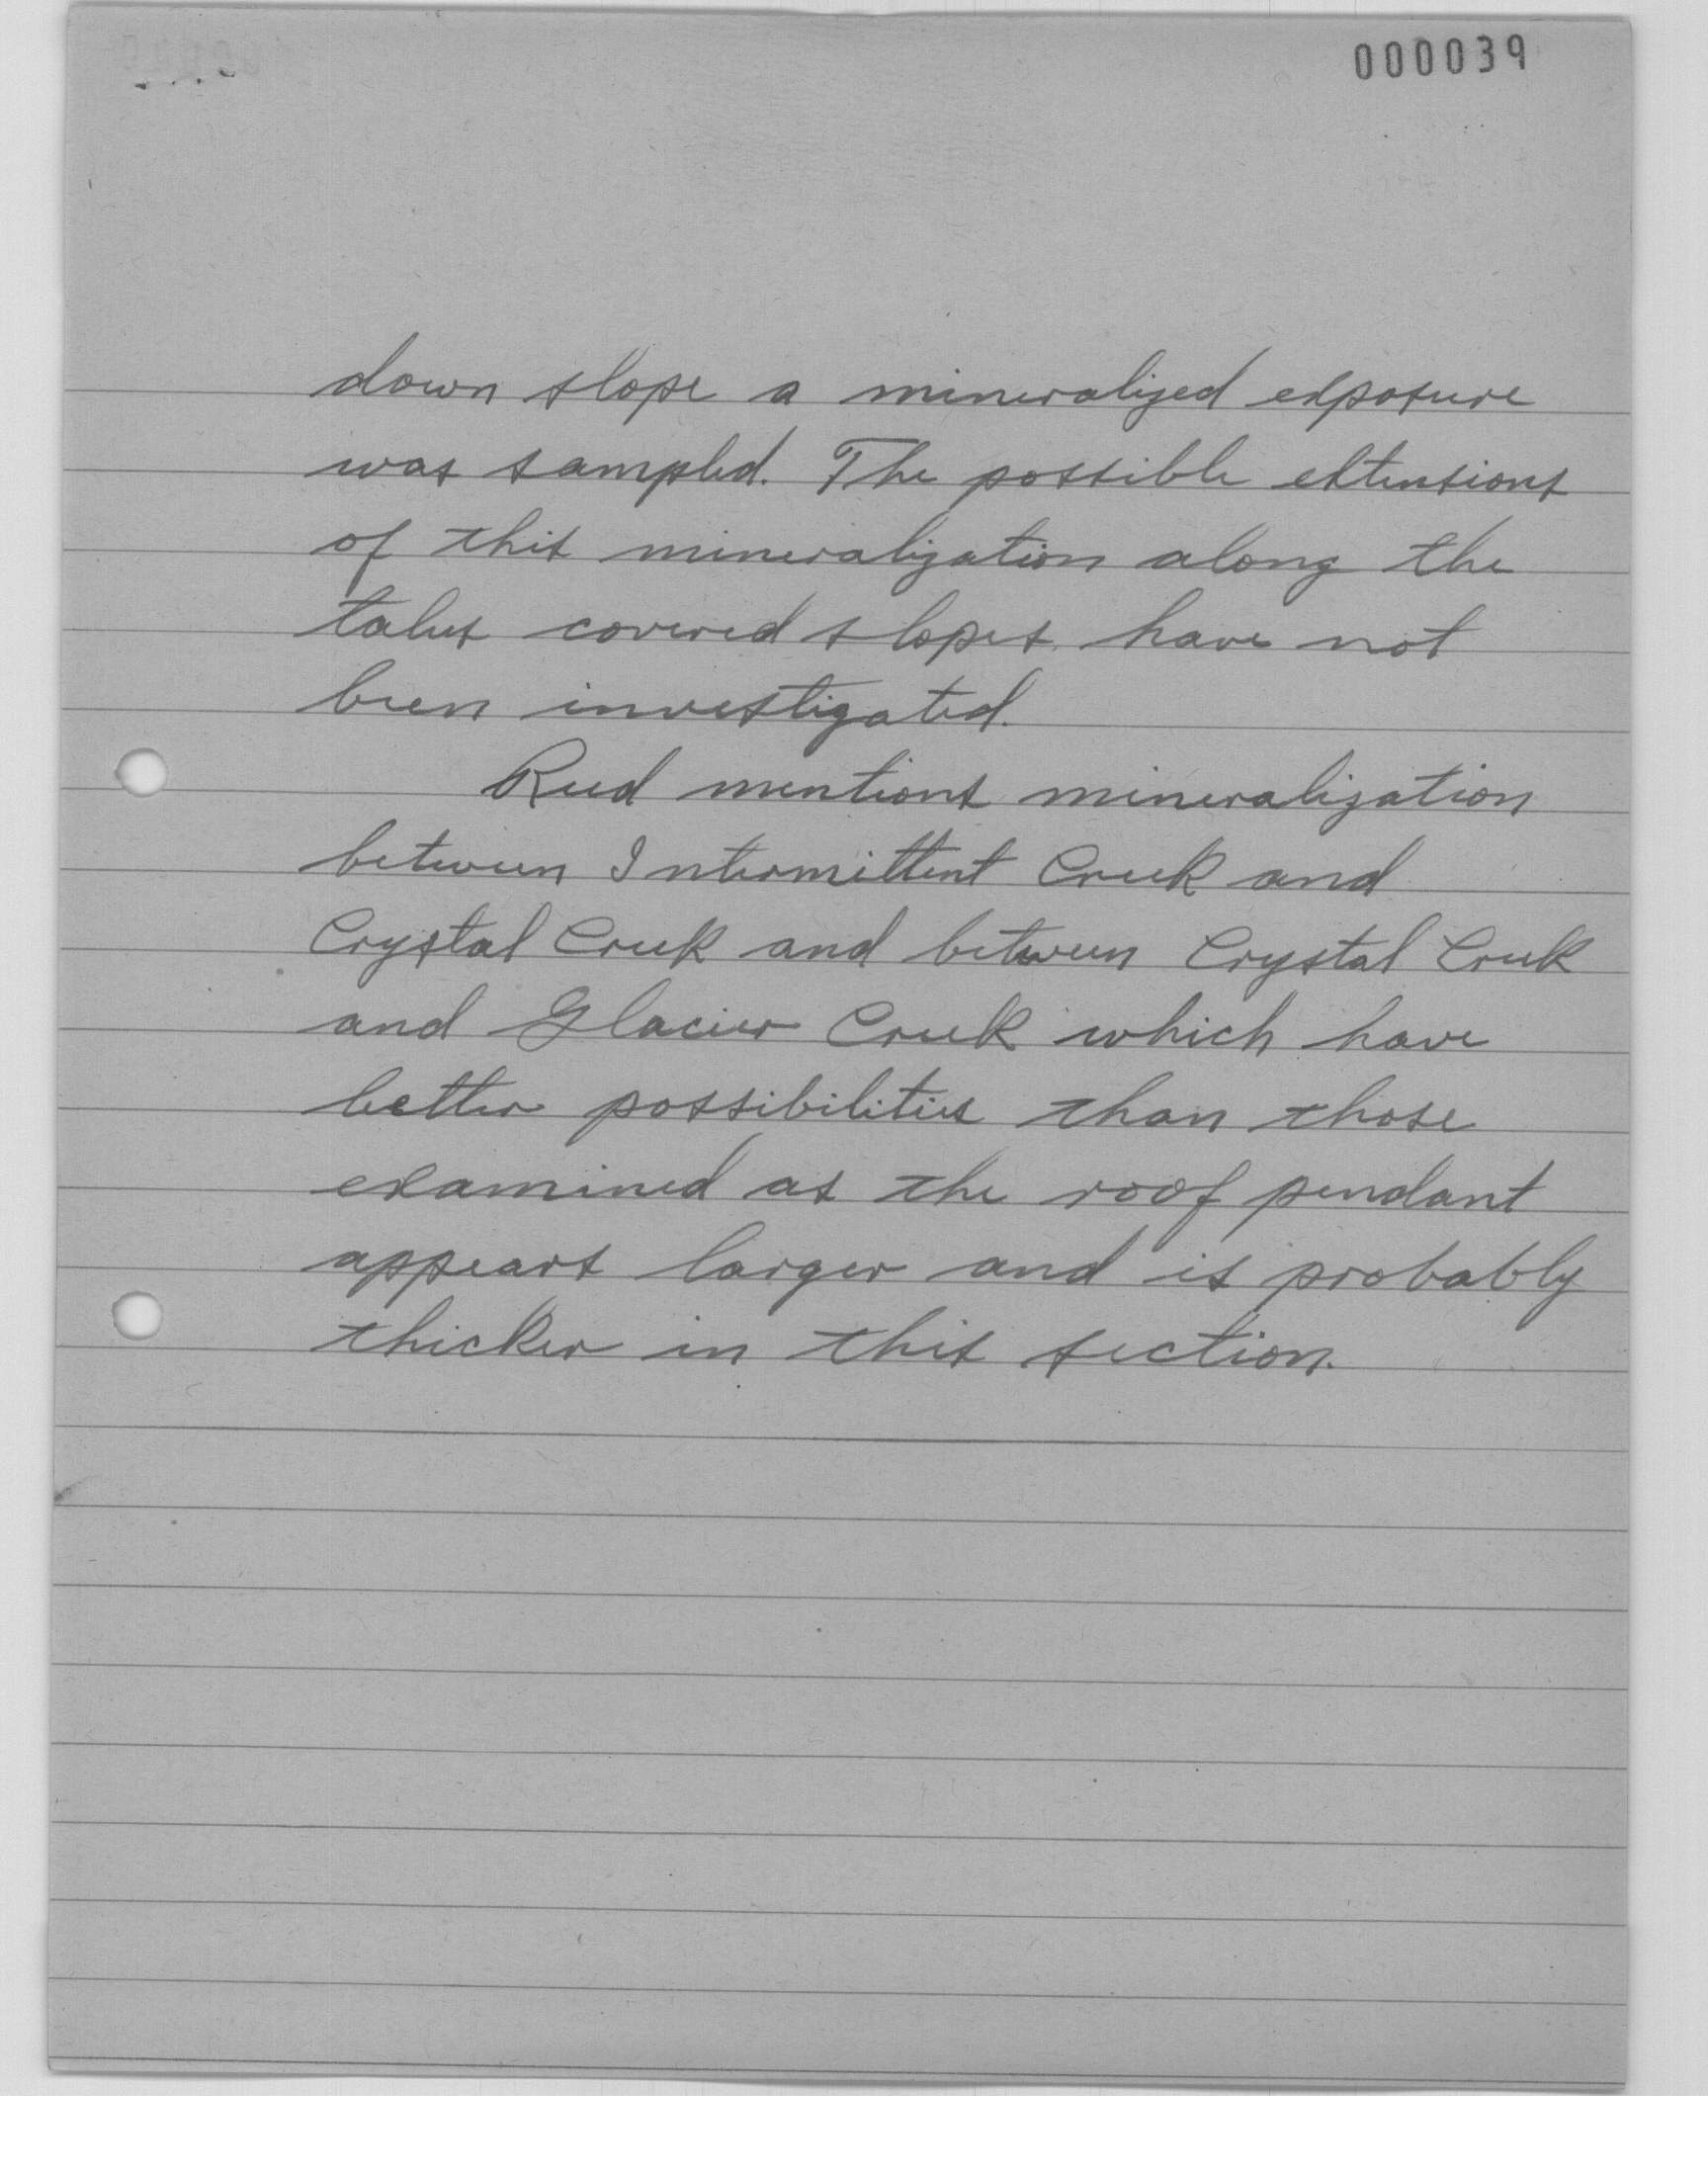 000039
down slope a mineralized exposure
was sampled. The possible extensions
of this mineralization along the
talus covered slopes have not
been investigated.
Reed mentions mineralization
between Intermittent Creek and
Crystal Creek and between Crystal Creek
and Glacier Creek which have
better possibilities than those
examined as the roof pendant
appears larger and is probably
thicker in this section.